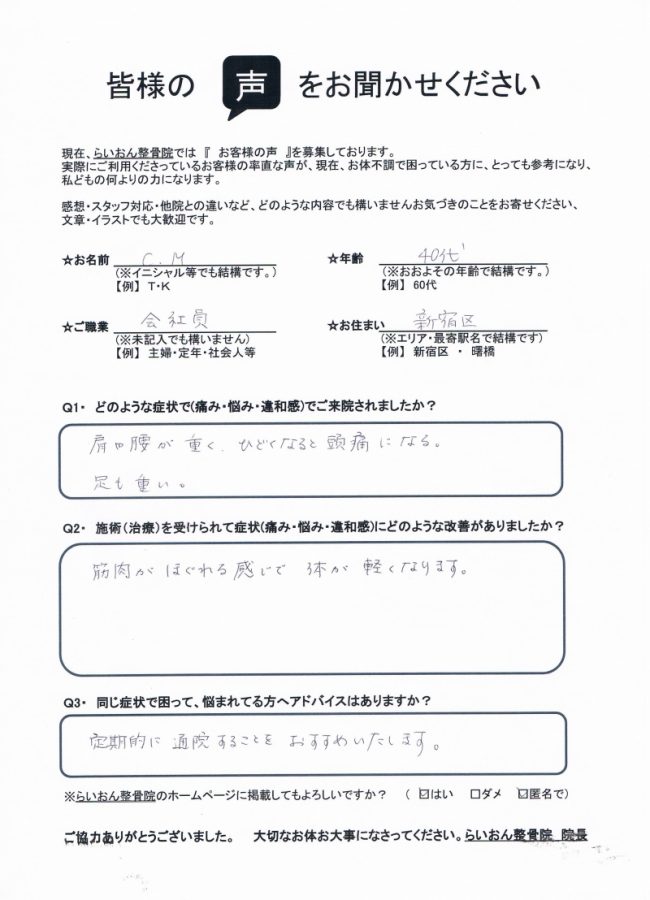 皆様の 声 をお聞かせください
現在、らいおん整骨院では『 お客様の声 』を募集しております。
実際にご利用くださっているお客様の率直な声が、現在、お体不調で困っている方に、とっても参考になり、
私どもの何よりの力になります。
感想・スタッフ対応・他院との違いなど、どのような内容でも構いませんお気づきのことをお寄せください、
文章・イラストでも大歓迎です。
☆お名前 C.M ☆年齢 40代
(※イニシャル等でも結構です。) (※おおよその年齢で結構です。)
【例】 T・K 【例】 60代
☆ご職業 会社員 ☆お住まい 新宿区
(※未記入でも構いません) (※エリア・最寄駅名で結構です)
【例】 主婦・定年・社会人等 【例】 新宿区 ・ 曙橋
Q1・ どのような症状で(痛み・悩み・違和感)でご来院されましたか?
肩や腰が重く、ひどくなると頭痛になる。
足も重い。
Q2・ 施術(治療)を受けられて症状(痛み・悩み・違和感)にどのような改善がありましたか?
筋肉がほぐれる感じで体が軽くなります。
Q3・ 同じ症状で困って、悩まれてる方へアドバイスはありますか?
定期的に通院することをおすすめいたします。
※らいおん整骨院のホームページに掲載してもよろしいですか? ( ☑はい □ダメ ☑匿名で)
ご協力ありがとうございました。 大切なお体お大事になさってください。らいおん整骨院 院長